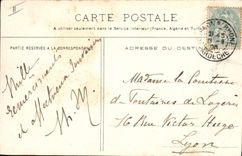 CARTE POSTALE
A utiliser seulement dans le service intérieur (France, Algérie et Tunisie)
PARTIE RÉSERVÉE A LA CORRESPONDANCE
ADRESSE DU DESTINATAIRE
ARDECHE
Mille
Remerciements
et affectueux
M. M.
Madame la Comtesse
de Fontaines de Logère
16 Rue Victor Hugo
Lyon